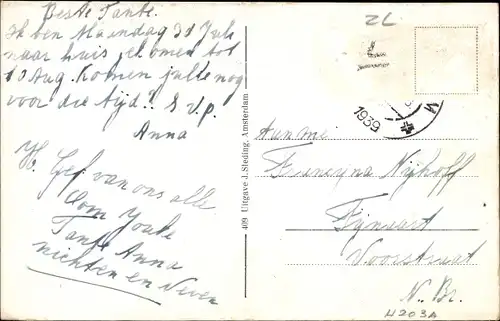 Beste Tante.
Ik ben Maandag 31 Juli
naar huis
10 Aug. Komen jullie nog
voor die tijd? S.V.P.
Anna
Gef van ons alle
Oom
Tante Anna
nichten en Neven
409 Uitgave J. Sleding, Amsterdam
ZL
1939
Aan Mej
Nijhoff
Fijnaart
Voorstraat
N. Br.
H203A